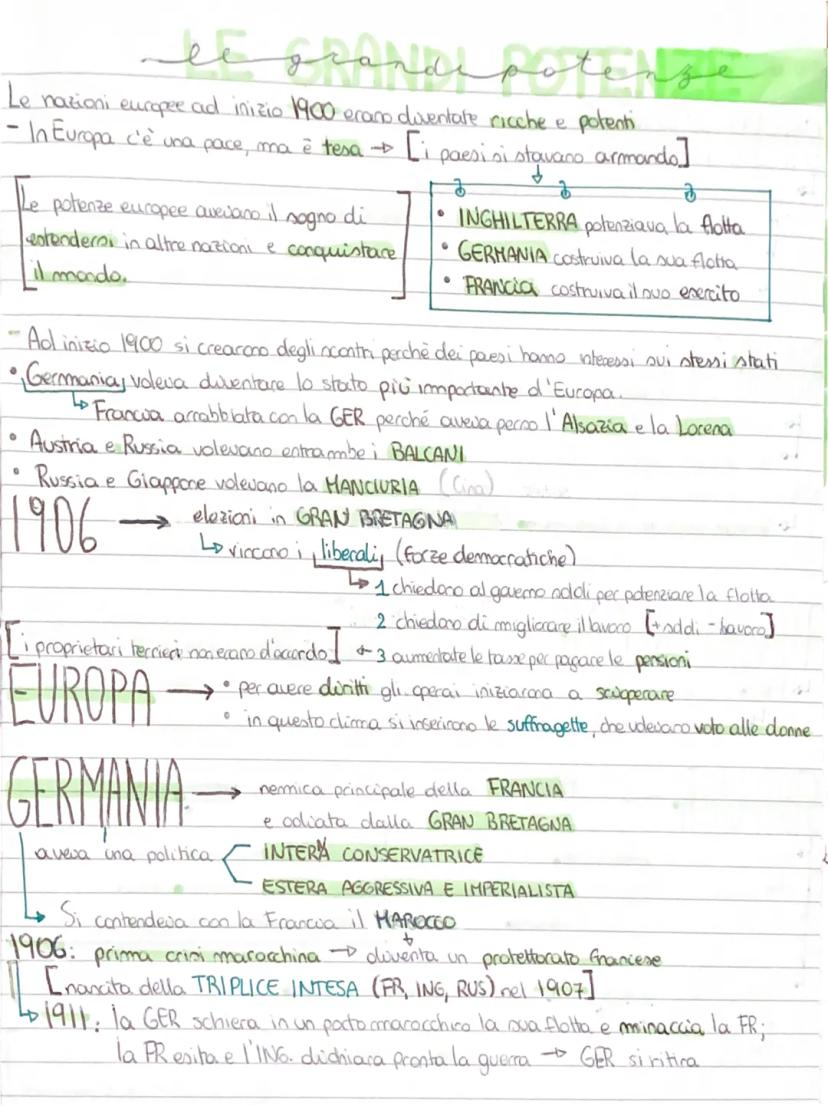 LE GRANDI POTENZE
le grandi potenze
Le nazioni europee ad inizio 1900 erano diventate ricche e potenti
- In Europa c'è una pace, ma è tesa → [i paesi si stavano armando]
[Le potenze europee avevano il sogno di
estendersi in altre nazioni e conquistare
il mondo.]
• INGHILTERRA potenziava la flotta
• GERMANIA costruiva la sua flotta
• FRANCIA costruiva il suo esercito
- Ad inizio 1900 si crearono degli scontri perchè dei paesi hanno interessi sui stessi stati
• Germania voleva diventare lo stato più importante d'Europa.
↳ Francia arrabbiata con la GER perché aveva perso l'Alsazia e la Lorena
• Austria e Russia volevano entrambe i BALCANI
• Russia e Giappone volevano la MANCIURIA (Cina)
1906 → elezioni in GRAN BRETAGNA
↳ vincono i liberali (forze democratiche)
↳ 1 chiedono al governo soldi per potenziare la flotta
2 chiedono di migliorare il lavoro [+ soldi - lavoro]
[i proprietari terrieri non erano d'accordo] ← 3 aumentate le tasse per pagare le pensioni
EUROPA → • per avere diritti gli operai iniziarono a scioperare
• in questo clima si inserirono le suffragette, che volevano voto alle donne
GERMANIA → nemica principale della FRANCIA
e odiata dalla GRAN BRETAGNA
aveva una politica < INTERA CONSERVATRICE
ESTERA AGGRESSIVA E IMPERIALISTA
↳ Si contendeva con la Francia il MAROCCO
1906: prima crisi marocchina → diventa un protettorato francese
[nascita della TRIPLICE INTESA (FR, ING, RUS) nel 1907]
↳ 1911: la GER schiera in un porto marocchico la sua flotta e minaccia la FR;
la FR esita e l'ING. dichiara pronta la guerra → GER si ritira